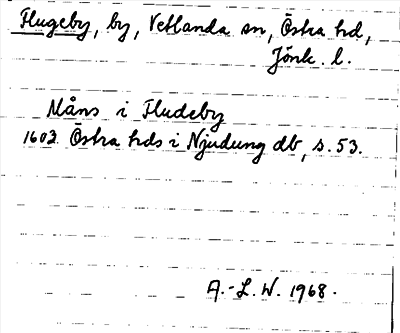 Flugeby, by, Vetlanda sn, Östra hd,
Jönk. l.
Måns i Fludeby
1602 Östra hds i Njudung db, s. 53.
A.-L. W. 1968.